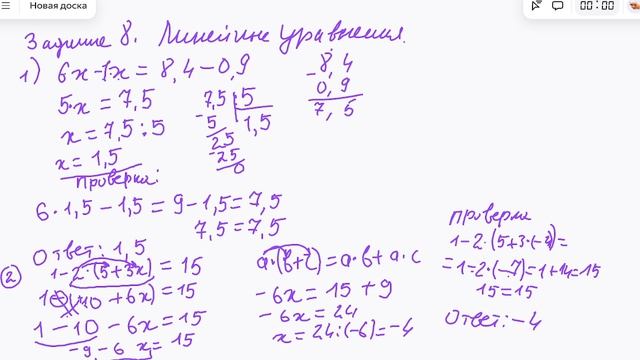 Новая доска
00:00
Задание 8. Линейные уравнения.
1) 6x-1x = 8,4-0,9
5·x = 7,5
x = 7,5:5
x = 1,5
7,5 5
- 5 1,5
25
- 25
0
- 8,4
0,9
7,5
проверка:
6·1,5-1,5=9-1,5=7,5
7,5=7,5
Ответ: 1,5
2 1-2·(5+3x)=15
1-(10+6x)=15
1-10-6x=15
-9-6x=15
a·(b+c)=a·b+a·c
-6x=15+9
-6x=24
x=24:(-6)=-4
проверка
1-2·(5+3·(-4)=
=1-2·(-7)=1+14=15
15=15
Ответ:-4